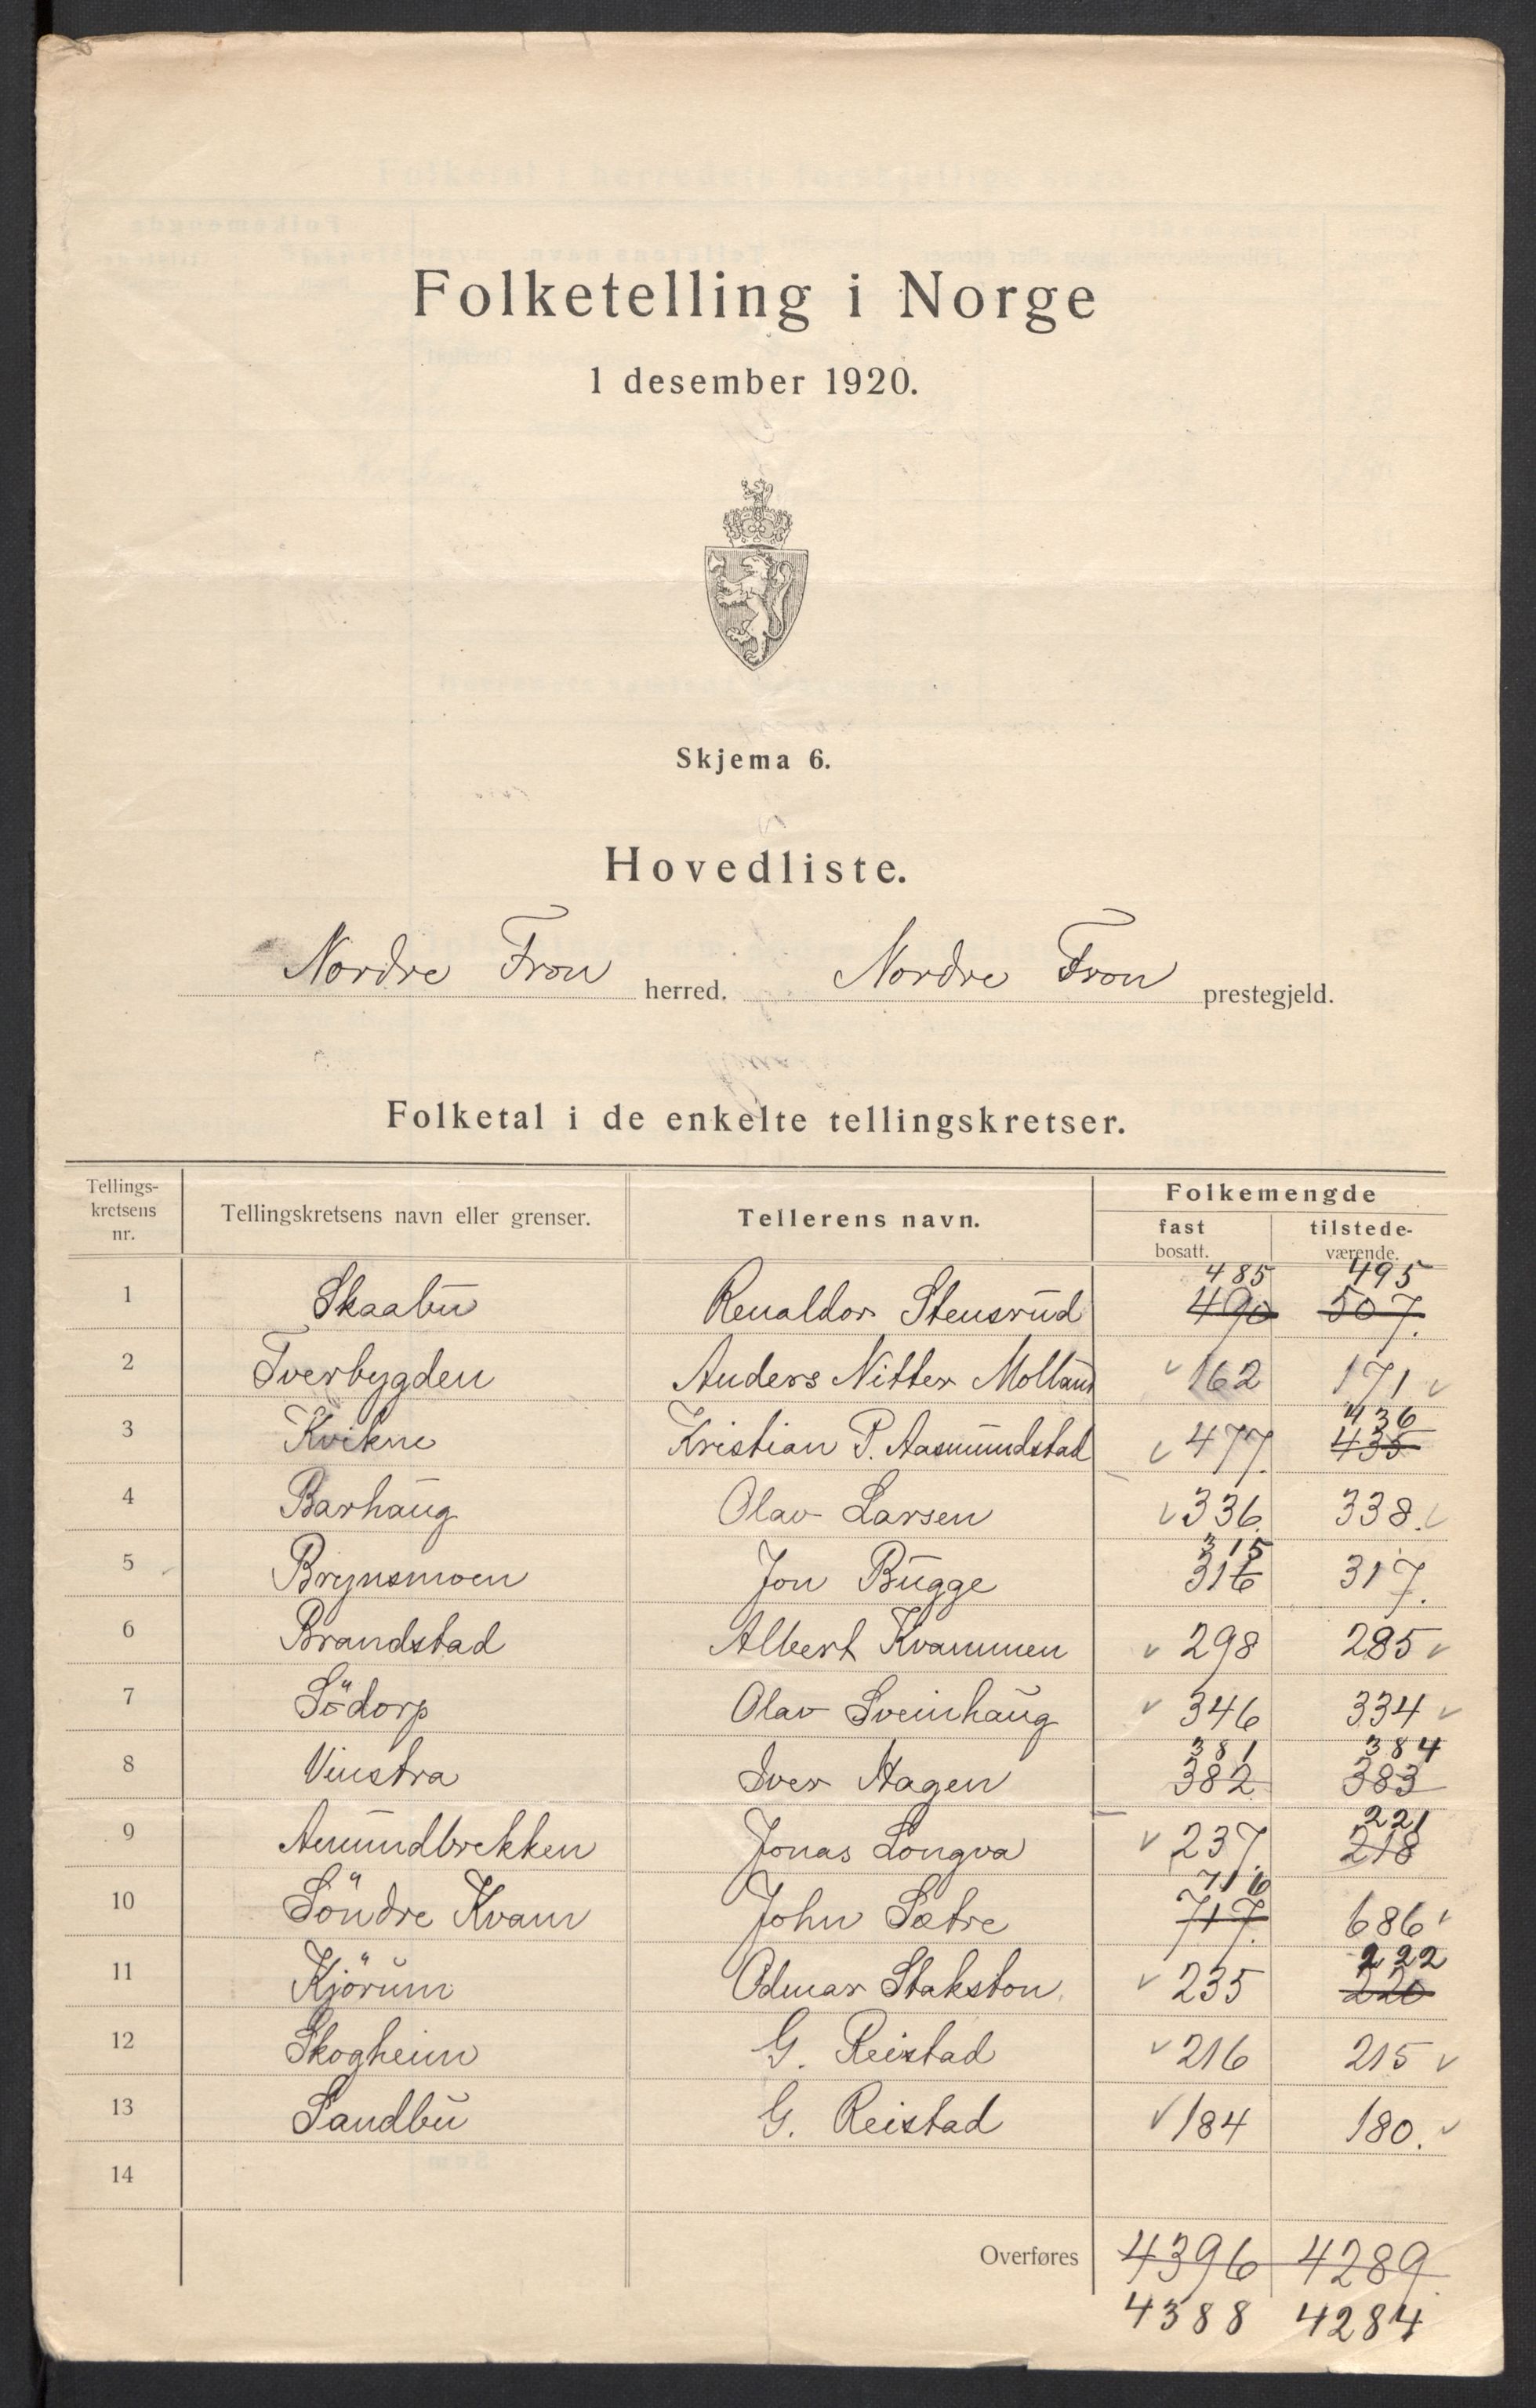 Folketelling i Norge
1 desember 1920.
Skjema 6.
Hovedliste.
Nordre Fron herred. Nordre Fron prestegjeld.
Folketal i de enkelte tellingskretser.
Tellings-
kretsens
nr.
Tellingskretsens navn eller grenser.
Tellerens navn.
Folkemengde
fast
bosatt.
tilstede-
værende.
485 495
1 Skaabu Renaldor Stensrud 490 507.
2 Tverbygden Anders Nitter Molland 162 171
436
3 Kvikne Kristian P. Aasmundstad 477. 435
4 Barhaug Olav Larsen 336. 338.
315
5 Brynsmoen Jon Bugge 316 317.
6 Brandstad Albert Kvammen 298 285
7 Södorp Olav Sveinhaug 346 334
381 384
8 Vinstra Iver Hagen 382 383
221
9 Amundbrekken Jonas Longva 237. 218
716
10 Söndre Kvam John Sætre 717. 686
222
11 Kjörum Odmar Stakston. 235 220
12 Skogheim G. Reistad 216 215
13 Sandbu G. Reistad 184 180.
14
Overføres 4396 4289.
4388 4284